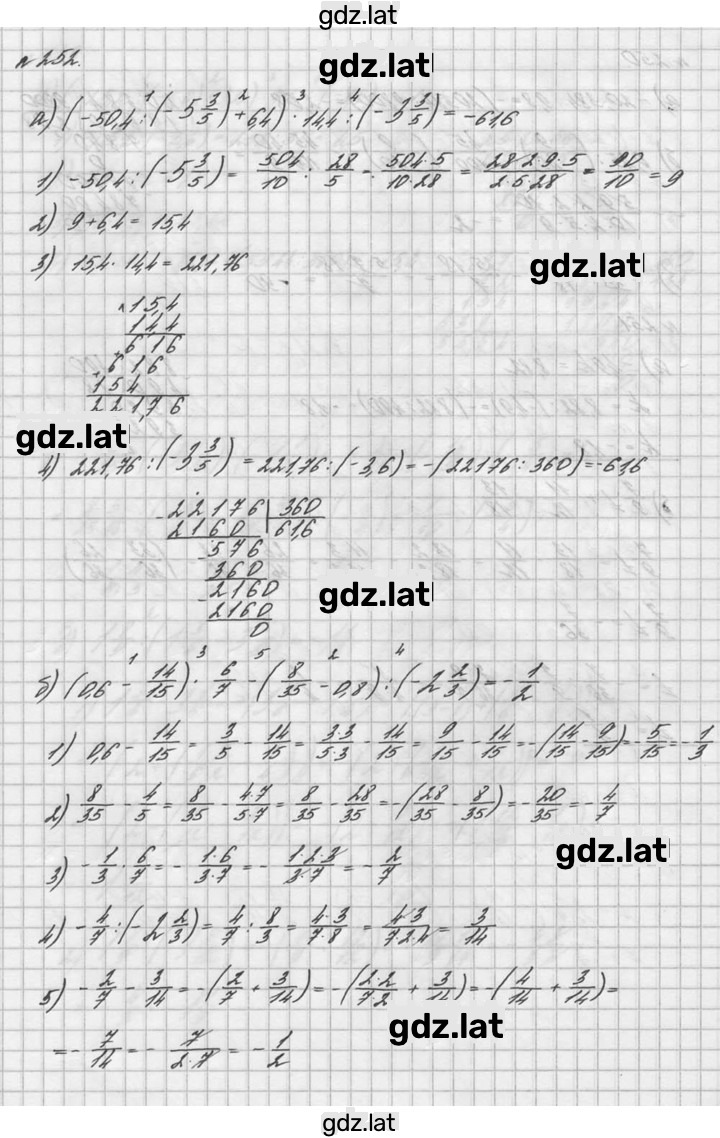 gdz.lat
gdz.lat
№252.
а) (−50,4 : (−5 3/5) + 64) · 14,4 : (−3 3/5) = −61,6
1 2 3 4
1) −50,4 : (−5 3/5) = 504/10 : 28/5 = 504·5/10·28 = 28·2·9·5/2·5·28 = 90/10 = 9
2) 9 + 6,4 = 15,4
3) 15,4 · 14,4 = 221,76
gdz.lat
15,4
144
616
616
154
221,76
gdz.lat
4) 221,76 : (−3 3/5) = 221,76 : (−3,6) = −(22176 : 360) = −61,6
22176 | 360
2160 61,6
576
360
2160
2160
0
gdz.lat
б) (0,6 − 14/15) · 6/7 − (8/35 − 0,8) : (−2 2/3) = −1/2
1 3 5 2 4
1) 0,6 − 14/15 = 3/5 − 14/15 = 3·3/5·3 − 14/15 = 9/15 − 14/15 = −(14/15 − 9/15) = −5/15 = −1/3
2) 8/35 − 4/5 = 8/35 − 4·7/5·7 = 8/35 − 28/35 = −(28/35 − 8/35) = −20/35 = −4/7
gdz.lat
3) −1/3 · 6/7 = −1·6/3·7 = −1·2·3/3·7 = −2/7
4) −4/7 : (−2 2/3) = 4/7 : 8/3 = 4·3/7·8 = 4·3/7·2·4 = 3/14
5) −2/7 − 3/14 = −(2/7 + 3/14) = −(2·2/7·2 + 3/14) = −(4/14 + 3/14) =
gdz.lat
= −7/14 = −7/2·7 = −1/2
gdz.lat